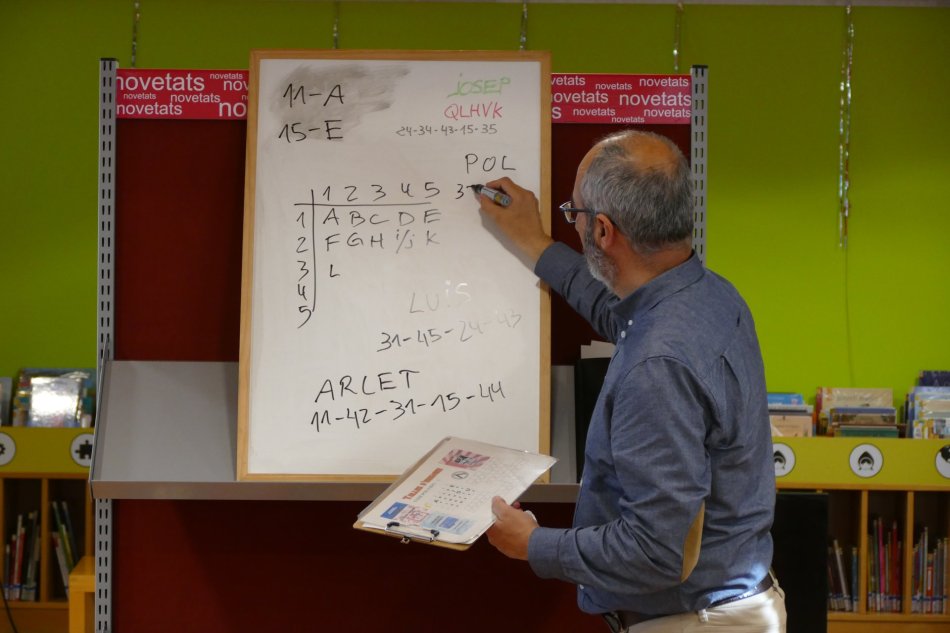 novetats novetats
novetats
novetats novetats
novetats
novetats
novetats
novetats novetats
novetats
novetats novetats
11-A
15-E
JOSEP
QLHVK
24-34-43-15-35
POL
3
1 2 3 4 5
1 A B C D E
2 F G H i/j K
3 L
4
5
LUIS
31-45-24-43
ARLET
11-42-31-15-44